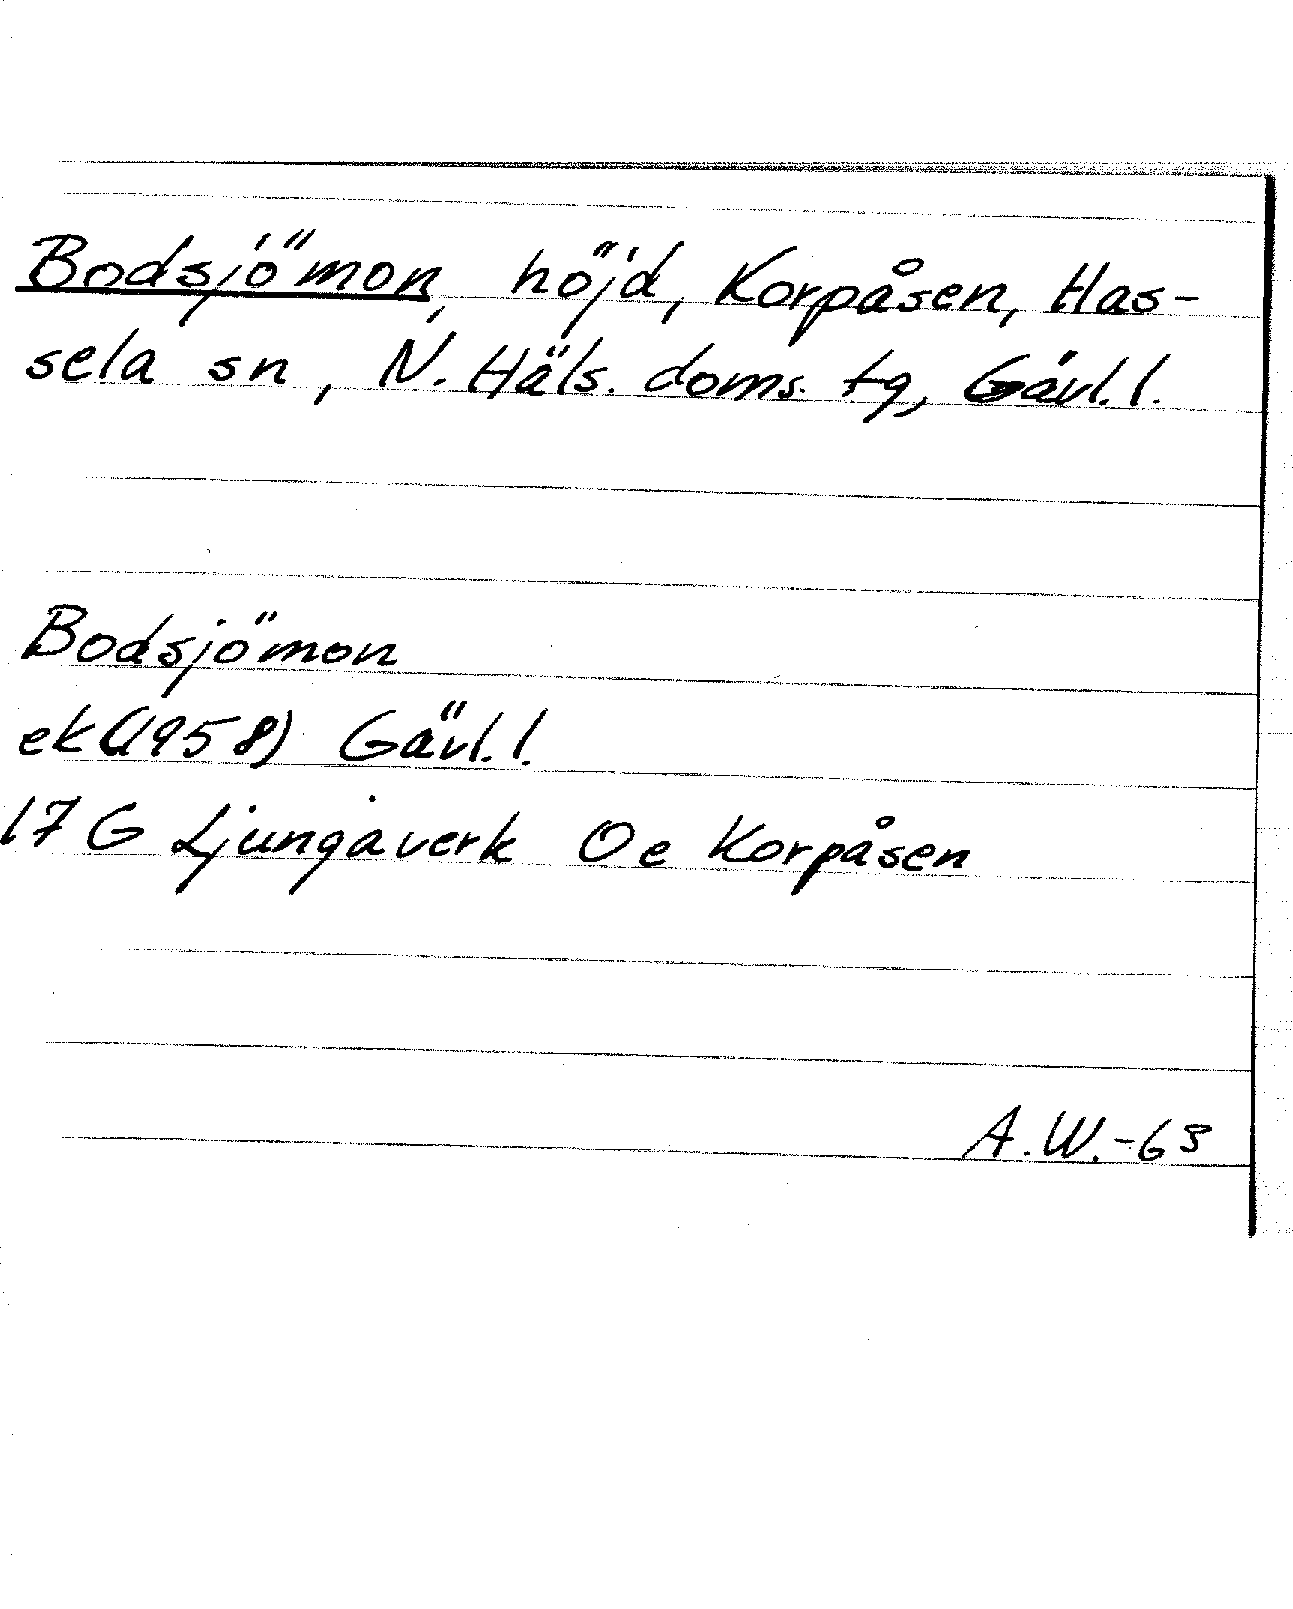 Bodsjömon, höjd, Korpåsen, Has-
sela sn, N. Häls. doms. tg, Gävl. l.
Bodsjömon
ek (1958) Gävl. l.
17 G Ljungaverk Oe Korpåsen
A.W.-63